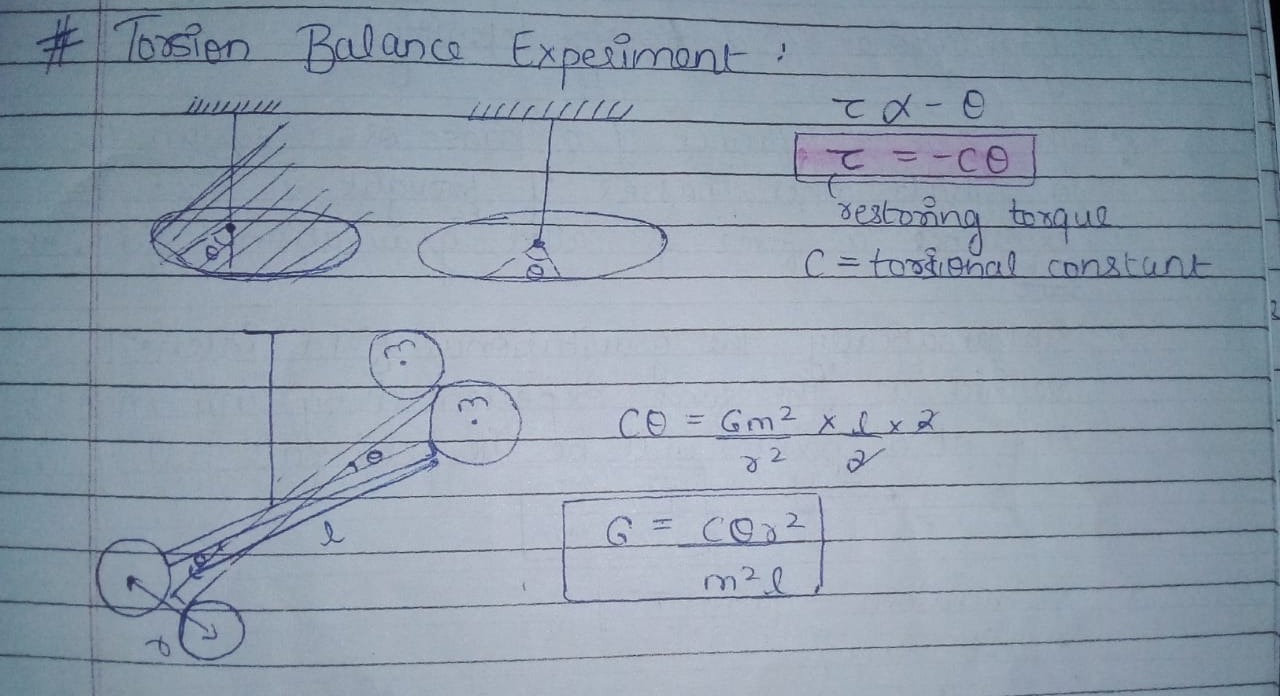 # Torsion Balance Experiment :
τ α - θ
τ = -Cθ
restoring torque
C = torsional constant
θ
θ
m
m
θ
Cθ = Gm²/r² × l/2 × 2
l
G = Cθr²/m²l
θ
r